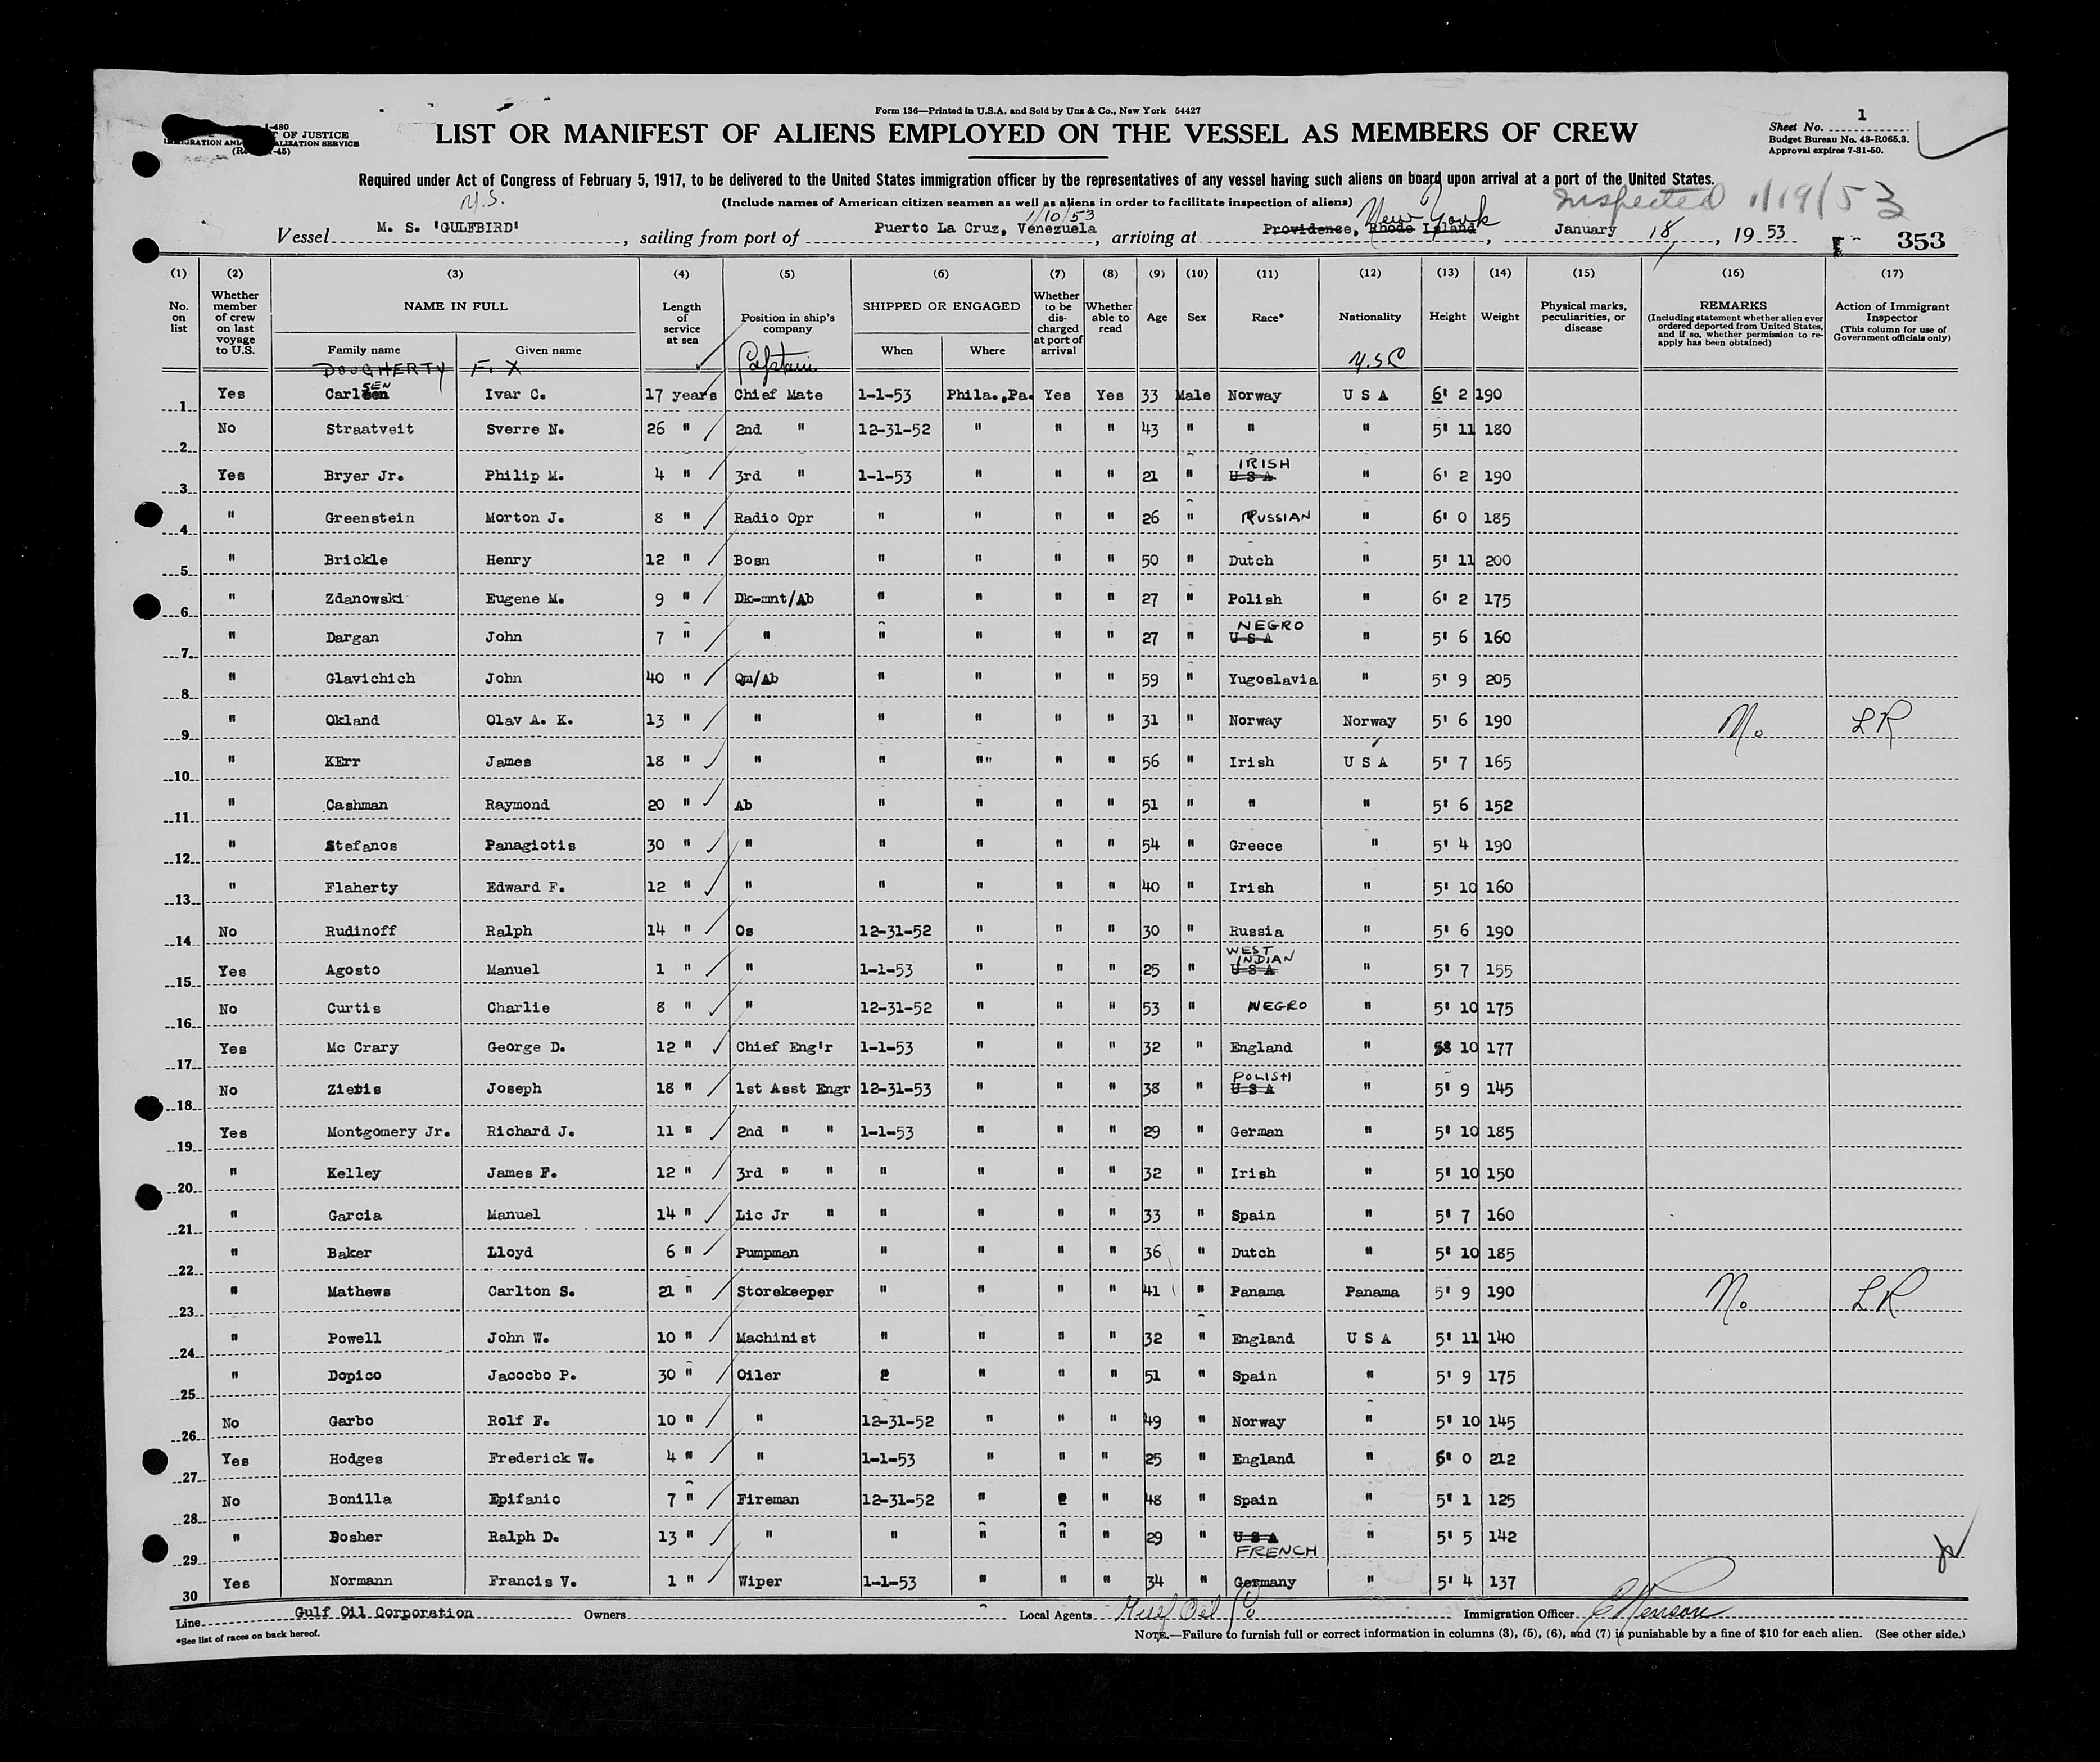 Form 136—Printed in U.S.A. and Sold by Unz & Co., New York 54427
I-480
T OF JUSTICE
IMMIGRATION AND ALIZATION SERVICE
LIST OR MANIFEST OF ALIENS EMPLOYED ON THE VESSEL AS MEMBERS OF CREW
1
Sheet No.
Budget Bureau No. 43-R065.3.
Approval expires 7-31-50.
Required under Act of Congress of February 5, 1917, to be delivered to the United States immigration officer by the representatives of any vessel having such aliens on board upon arrival at a port of the United States.
(Include names of American citizen seamen as well as aliens in order to facilitate inspection of aliens)
Inspected 1/19/53
M.S. 1/10/53 New York
Vessel M. S. 'GULFBIRD', sailing from port of Puerto La Cruz, Venezuela, arriving at Providence, Rhode Island, January 18, 1953 353
(1) (2) (3) (4) (5) (6) (7) (8) (9) (10) (11) (12) (13) (14) (15) (16) (17)
No. on list
Whether member of crew on last voyage to U.S.
NAME IN FULL
Family name Given name
Length of service at sea
Position in ship's company
SHIPPED OR ENGAGED
When Where
Whether to be discharged at port of arrival
Whether able to read
Age Sex Race* Nationality Height Weight
Physical marks, peculiarities, or disease
REMARKS
(Including statement whether alien ever ordered deported from United States, and if so, whether permission to reapply has been obtained)
Action of Immigrant Inspector
(This column for use of Government officials only)
DOUGHERTY F. X Captain U.S.C
SEN
1 Yes Carlsen Ivar C. 17 years Chief Mate 1-1-53 Phila.,Pa. Yes Yes 33 Male Norway U S A 6' 2 190
2 No Straatveit Sverre N. 26 " 2nd " 12-31-52 " " " 43 " " " 5' 11 180
3 Yes Bryer Jr. Philip M. 4 " 3rd " 1-1-53 " " " 21 " U S A IRISH " 6' 2 190
4 " Greenstein Morton J. 8 " Radio Opr " " " " 26 " RUSSIAN " 6' 0 185
5 " Brickle Henry 12 " Bosn " " " " 50 " Dutch " 5' 11 200
6 " Zdanowski Eugene M. 9 " Dk-mnt/Ab " " " " 27 " Polish " 6' 2 175
7 " Dargan John 7 " " " " " " 27 " U S A NEGRO " 5' 6 160
8 " Glavichich John 40 " Qm/Ab " " " " 59 " Yugoslavia " 5' 9 205
9 " Okland Olav A. K. 13 " " " " " " 31 " Norway Norway 5' 6 190 No LR
10 " KErr James 18 " " " "" " " 56 " Irish U S A 5' 7 165
11 " Cashman Raymond 20 " Ab " " " " 51 " " " 5' 6 152
12 " Stefanos Panagiotis 30 " " " " " " 54 " Greece " 5' 4 190
13 " Flaherty Edward F. 12 " " " " " " 40 " Irish " 5' 10 160
14 No Rudinoff Ralph 14 " Os 12-31-52 " " " 30 " Russia " 5' 6 190
15 Yes Agosto Manuel 1 " " 1-1-53 " " " 25 " U S A WEST INDIAN " 5' 7 155
16 No Curtis Charlie 8 " " 12-31-52 " " " 53 " NEGRO " 5' 10 175
17 Yes Mc Crary George D. 12 " Chief Eng'r 1-1-53 " " " 32 " England " 5' 10 177
18 No Zietis Joseph 18 " 1st Asst Engr 12-31-53 " " " 38 " U S A POLISH " 5' 9 145
19 Yes Montgomery Jr. Richard J. 11 " 2nd " " 1-1-53 " " " 29 " German " 5' 10 185
20 " Kelley James F. 12 " 3rd " " " " " " 32 " Irish " 5' 10 150
21 " Garcia Manuel 14 " Lic Jr " " " " " 33 " Spain " 5' 7 160
22 " Baker Lloyd 6 " Pumpman " " " " 36 " Dutch " 5' 10 185
23 " Mathews Carlton S. 21 " Storekeeper " " " " 41 " Panama Panama 5' 9 190 No LR
24 " Powell John W. 10 " Machinist " " " " 32 " England U S A 5' 11 140
25 " Dopico Jacocbo P. 30 " Oiler " " " " 51 " Spain " 5' 9 175
26 No Garbo Rolf F. 10 " " 12-31-52 " " " 49 " Norway " 5' 10 145
27 Yes Hodges Frederick W. 4 " " 1-1-53 " " " 25 " England " 6' 0 212
28 No Bonilla Epifanio 7 " Fireman 12-31-52 " " " 48 " Spain " 5' 1 125
29 " Bosher Ralph D. 13 " " " " " " 29 " U S A FRENCH " 5' 5 142
30 Yes Normann Francis V. 1 " Wiper 1-1-53 " " " 34 " Germany " 5' 4 137
Line Gulf Oil Corporation Owners Local Agents Gulf Oil Co Immigration Officer
*See list of races on back hereof.
NOTE.—Failure to furnish full or correct information in columns (3), (5), (6), and (7) is punishable by a fine of $10 for each alien. (See other side.)